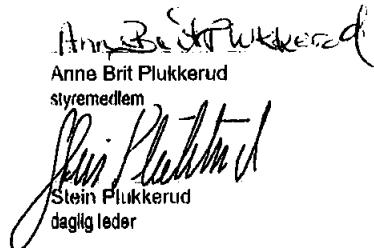 Anne Brit Plukkerud
Anne Brit Plukkerud
styremedlem
Stein Plukkerud
Stein Plukkerud
daglig leder